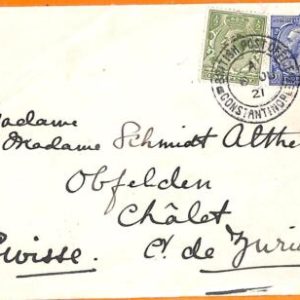 BRITISH POST OFFICE
21
CONSTANTINO
Madame
Madame Schmidt Althe
Obfelden
Châlet
Suisse. Ct. de Zuri